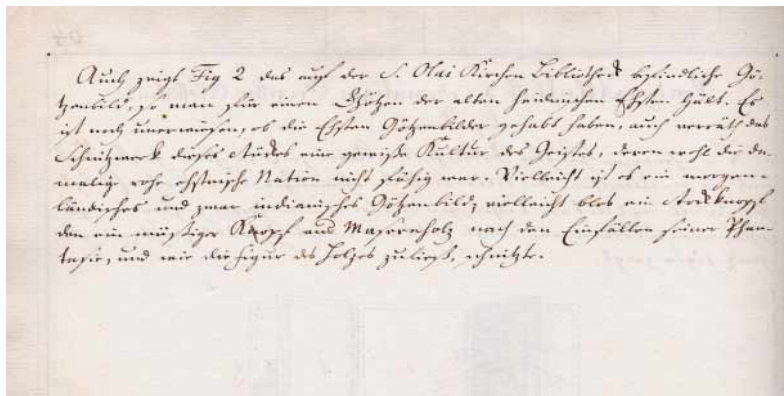 Auch zeigt Fig 2 das auf der S. Olai Kirchen Bibliothek befindliche Gö-
tzenbild, so man für einen Götzen der alten heidnischen Ehsten hält. Es
ist noch unerwiesen, ob die Ehsten Götzenbilder gehabt haben, auch verräth das
Schnitzwerk dieses Stückes eine gewisse Kultur des Geistes, deren wohl die da-
malige rohe ehstnische Nation nicht fähig war. Vielleicht ist es ein morgen-
ländisches und zwar indianisches Götzenbild; vielleicht blos ein Stockknopf
den ein müssiger Knopf aus Masernholz nach den Einfällen seiner Phan-
tasie, und wie die Figur des Holzes zuließ, schnitzte.